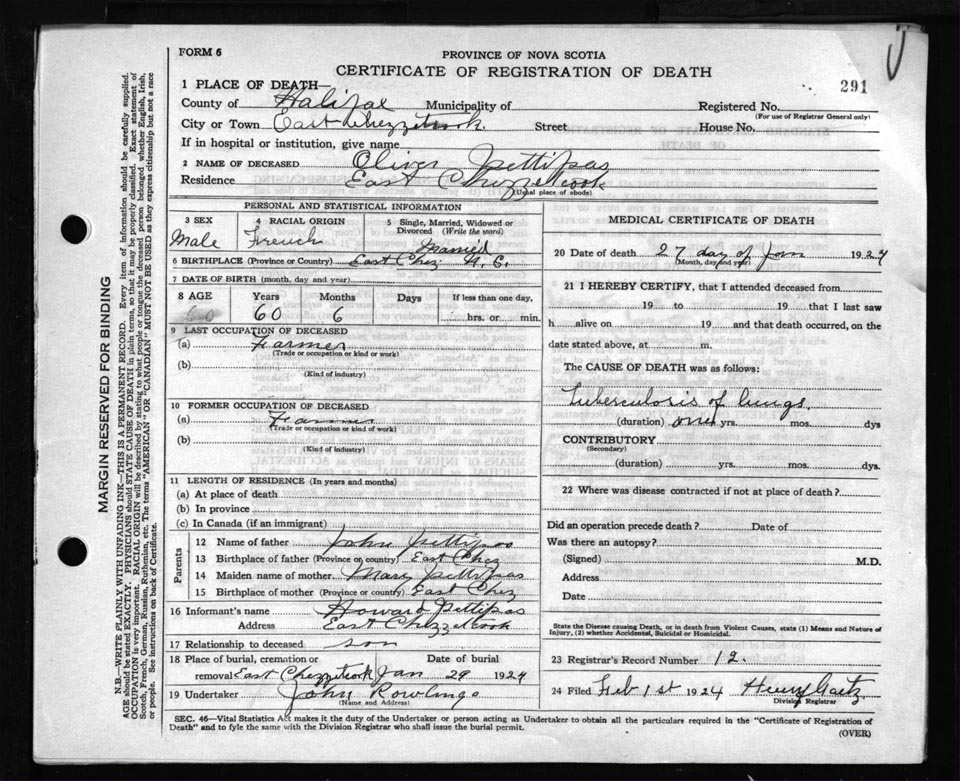 FORM 6
PROVINCE OF NOVA SCOTIA
CERTIFICATE OF REGISTRATION OF DEATH
291
1 PLACE OF DEATH—
County of Halifax Municipality of Registered No.
(For use of Registrar General only)
City or Town East Chezzetcook. Street House No.
If in hospital or institution, give name
2 NAME OF DECEASED Oliver Pettipas
Residence East Chezzetcook
(Usual place of abode)
PERSONAL AND STATISTICAL INFORMATION
3 SEX 4 RACIAL ORIGIN 5 Single, Married, Widowed or Divorced (Write the word)
Male French Married
6 BIRTHPLACE (Province or Country) East Chez
7 DATE OF BIRTH (month, day and year)
8 AGE Years Months Days If less than one day,
60 60 6 hrs. or min.
9 LAST OCCUPATION OF DECEASED
(a) Farmer
(Trade or occupation or kind or work)
(b)
(Kind of industry)
10 FORMER OCCUPATION OF DECEASED
(a) Farmer
(Trade or occupation or kind of work)
(b)
(Kind of industry)
11 LENGTH OF RESIDENCE (In years and months)
(a) At place of death
(b) In province
(c) In Canada (if an immigrant)
Parents
12 Name of father John Pettipas
13 Birthplace of father (Province or country) East Chez
14 Maiden name of mother Mary Pettipas
15 Birthplace of mother (Province or country) East Chez
16 Informant's name Howard Pettipas
Address East Chezzetcook
17 Relationship to deceased son
18 Place of burial, cremation or removal Date of burial
East Chezzetcook Jan 29 1924
19 Undertaker John Rowlings
(Name and Address)
MEDICAL CERTIFICATE OF DEATH
20 Date of death 27 day of Jan 1924
(Month, day and year)
21 I HEREBY CERTIFY, that I attended deceased from
19 to 19 that I last saw
h alive on 19 and that death occurred, on the
date stated above, at m.
The CAUSE OF DEATH was as follows:
Tuberculosis of lungs.
(duration) one yrs. mos. dys
CONTRIBUTORY
(Secondary)
(duration) yrs. mos. dys.
22 Where was disease contracted if not at place of death?
Did an operation precede death? Date of
Was there an autopsy?
(Signed) M.D.
Address
Date
State the Disease causing Death, or in death from Violent Causes, state (1) Means and Nature of
Injury, (2) whether Accidental, Suicidal or Homicidal.
23 Registrar's Record Number 12.
24 Filed Feb 1st 1924 Henry Gaetz
Division Registrar
SEC. 46—Vital Statistics Act makes it the duty of the Undertaker or person acting as Undertaker to obtain all the particulars required in the "Certificate of Registration of
Death" and to fyle the same with the Division Registrar who shall issue the burial permit.
(OVER)
MARGIN RESERVED FOR BINDING
N.B.—WRITE PLAINLY WITH UNFADING INK—THIS IS A PERMANENT RECORD. Every item of information should be carefully supplied.
AGE should be stated EXACTLY. PHYSICIANS should STATE CAUSE OF DEATH in plain terms, so that it may be properly classified. Exact statement of
OCCUPATION is very important. RACIAL ORIGIN will be described by stating to what people or tongue the deceased person belonged whether English, Irish,
Scotch, French, German, Russian, Ruthenian, etc. The terms "AMERICAN" OR "CANADIAN" MUST NOT BE USED as they express citizenship but not a race
or people. See instructions on back of Certificate.